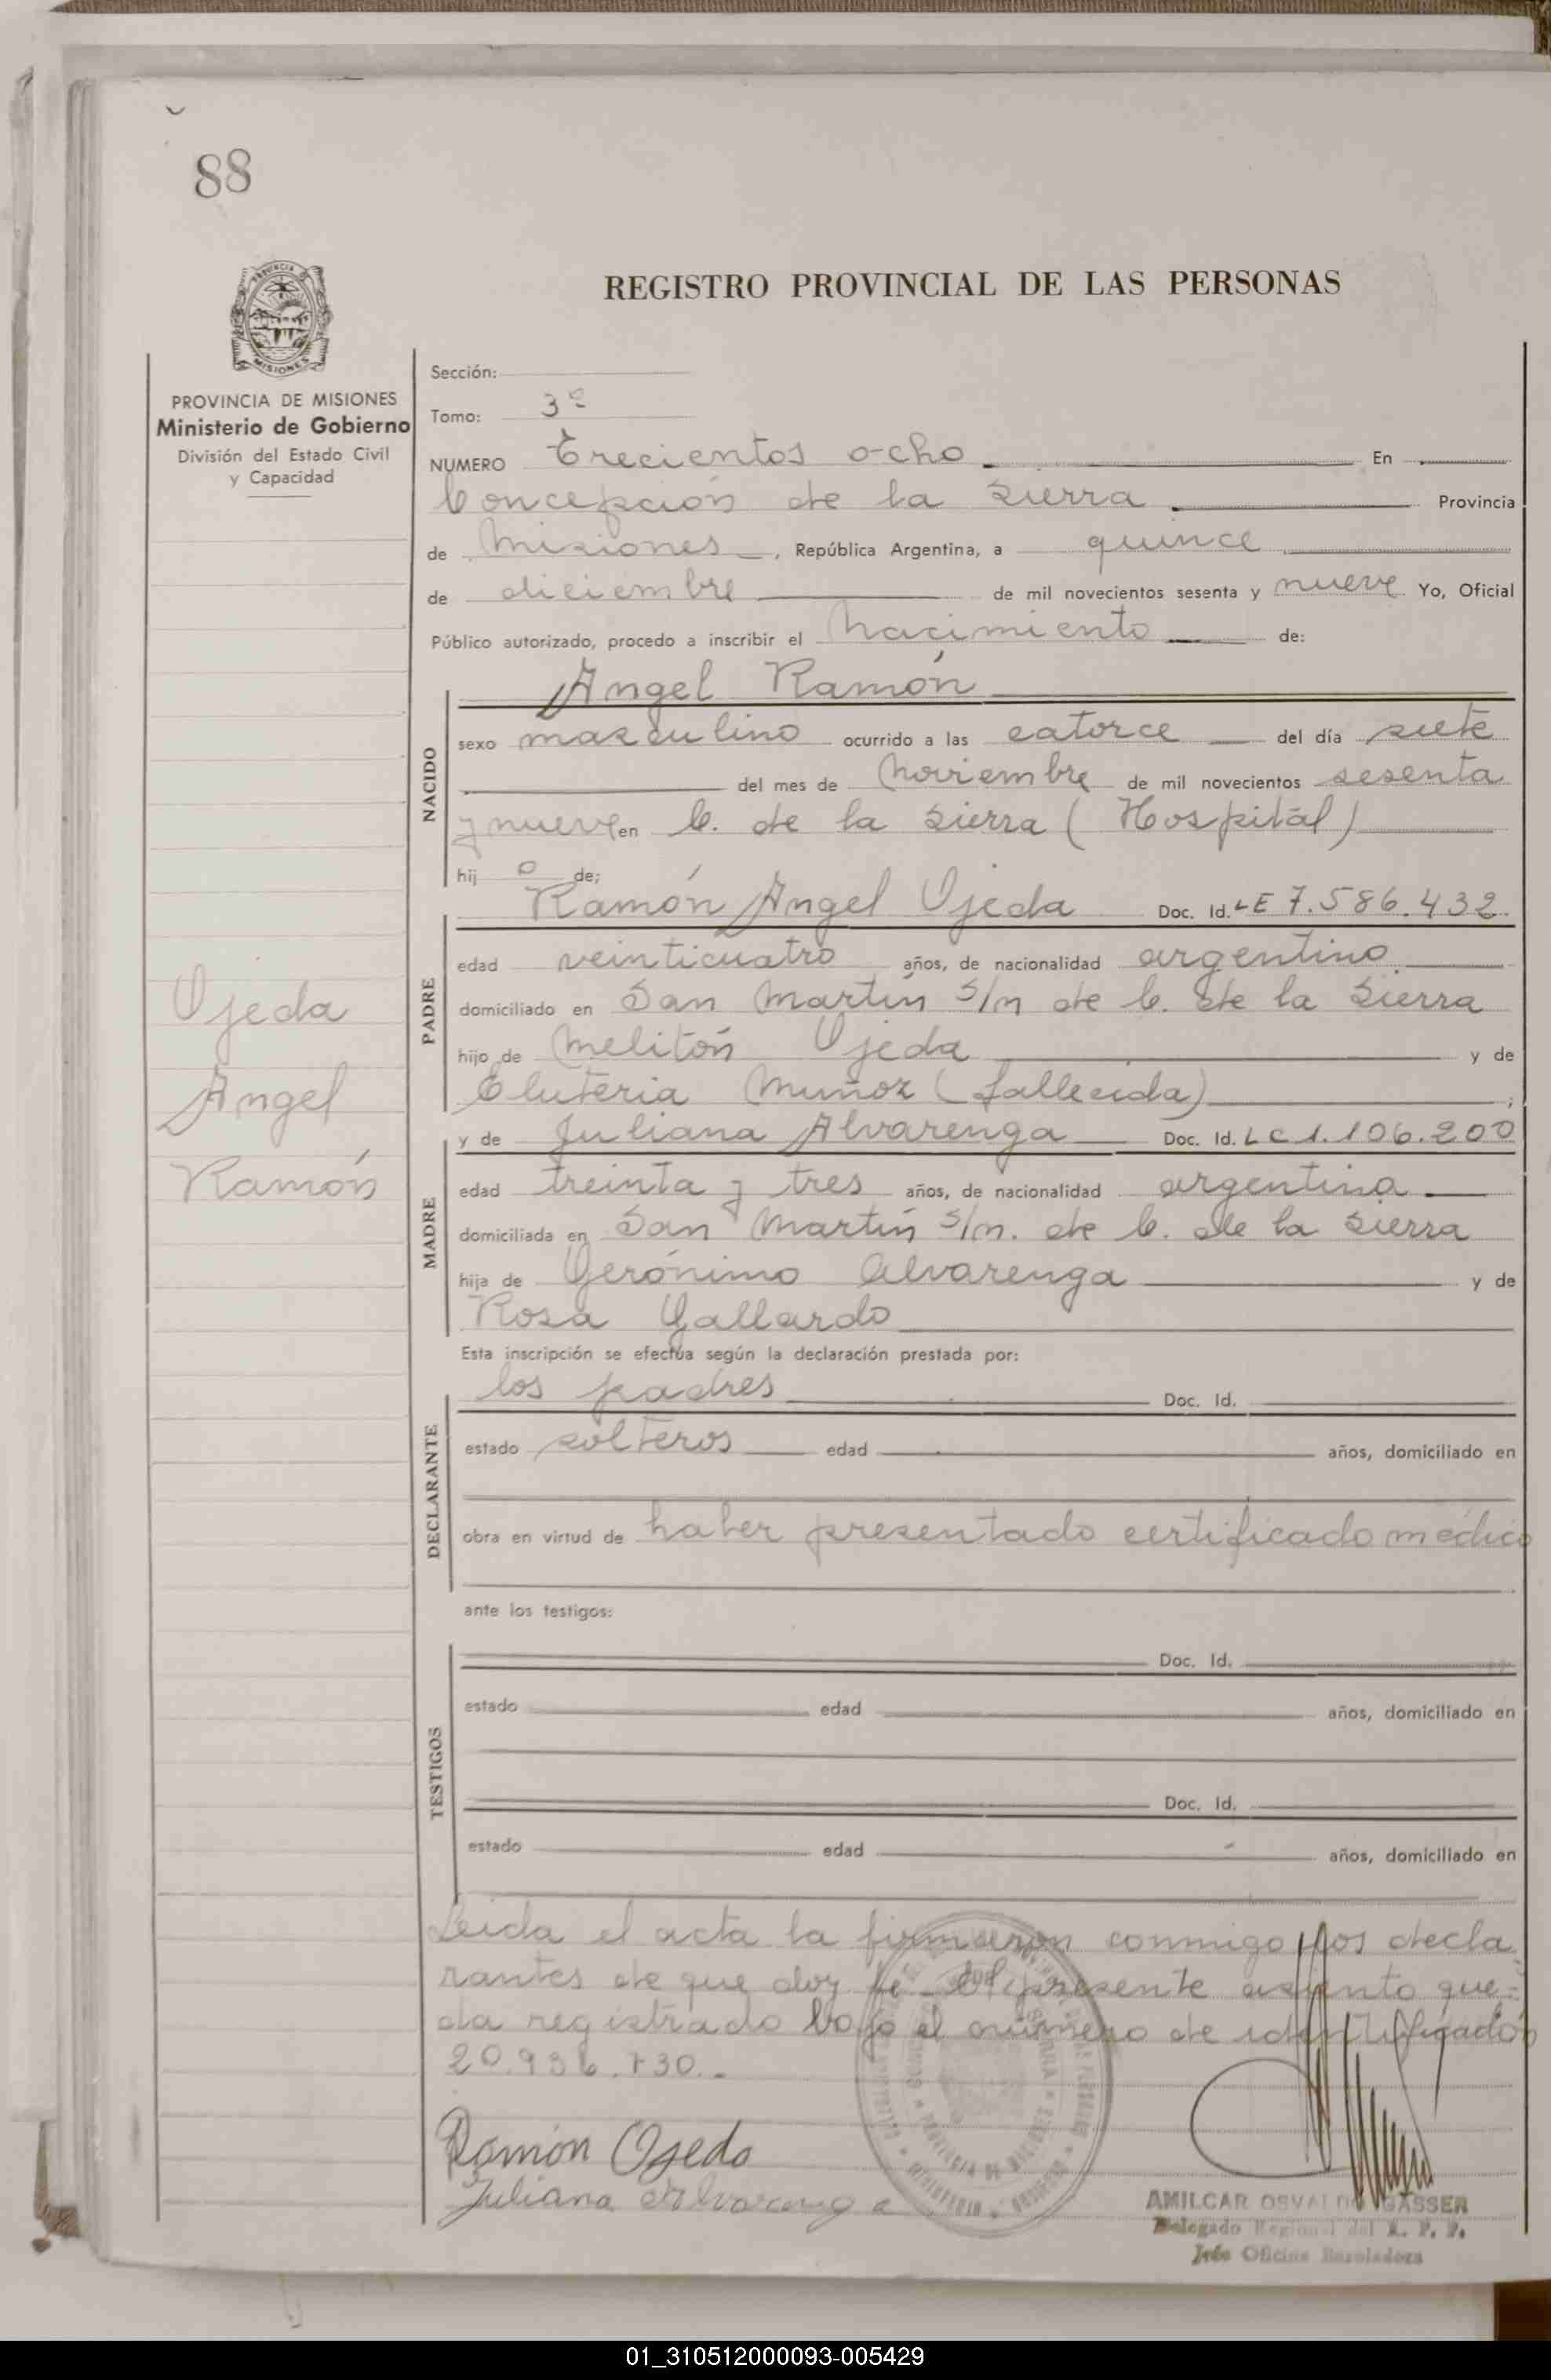 88
REGISTRO PROVINCIAL DE LAS PERSONAS
PROVINCIA
MISIONES
PROVINCIA DE MISIONES
Ministerio de Gobierno
División del Estado Civil
y Capacidad
Ojeda
Angel
Ramón
Sección:
Tomo: 3º
NUMERO Trecientos ocho En
Concepción de la Sierra Provincia
de Misiones, República Argentina, a quince
de diciembre de mil novecientos sesenta y nueve Yo, Oficial
Público autorizado, procedo a inscribir el nacimiento de:
NACIDO
Angel Ramón
sexo masculino ocurrido a las catorce del día siete
del mes de noviembre de mil novecientos sesenta
y nueve en C. de la Sierra (Hospital)
hij o de;
PADRE
Ramón Angel Ojeda Doc. Id. LE 7.586.432
edad veinticuatro años, de nacionalidad argentino
domiciliado en San Martín s/n de C. de la Sierra
hijo de Melitón Ojeda y de
Eluteria Muñoz (fallecida) ;
MADRE
y de Juliana Alvarenga Doc. Id. LC 1.106.200
edad treinta y tres años, de nacionalidad argentina
domiciliada en San Martín s/n. de C. de la Sierra
hija de Gerónimo Alvarenga y de
Rosa Gallardo
Esta inscripción se efectúa según la declaración prestada por:
DECLARANTE
los padres Doc. Id.
estado solteros edad años, domiciliado en
obra en virtud de haber presentado certificado médico
ante los testigos:
TESTIGOS
Doc. Id.
estado edad años, domiciliado en
Doc. Id.
estado edad años, domiciliado en
Leida el acta la firmaron conmigo los decla
rantes de que doy fe. El presente asiento que-
da registrado bajo el número de identificación
20.936.730.-
Ramón Ojeda
Juliana Alvarenga
AMILCAR OSVALDO GASSER
Delegado Regional del R. P. P.
Jefe Oficina
01_310512000093-005429